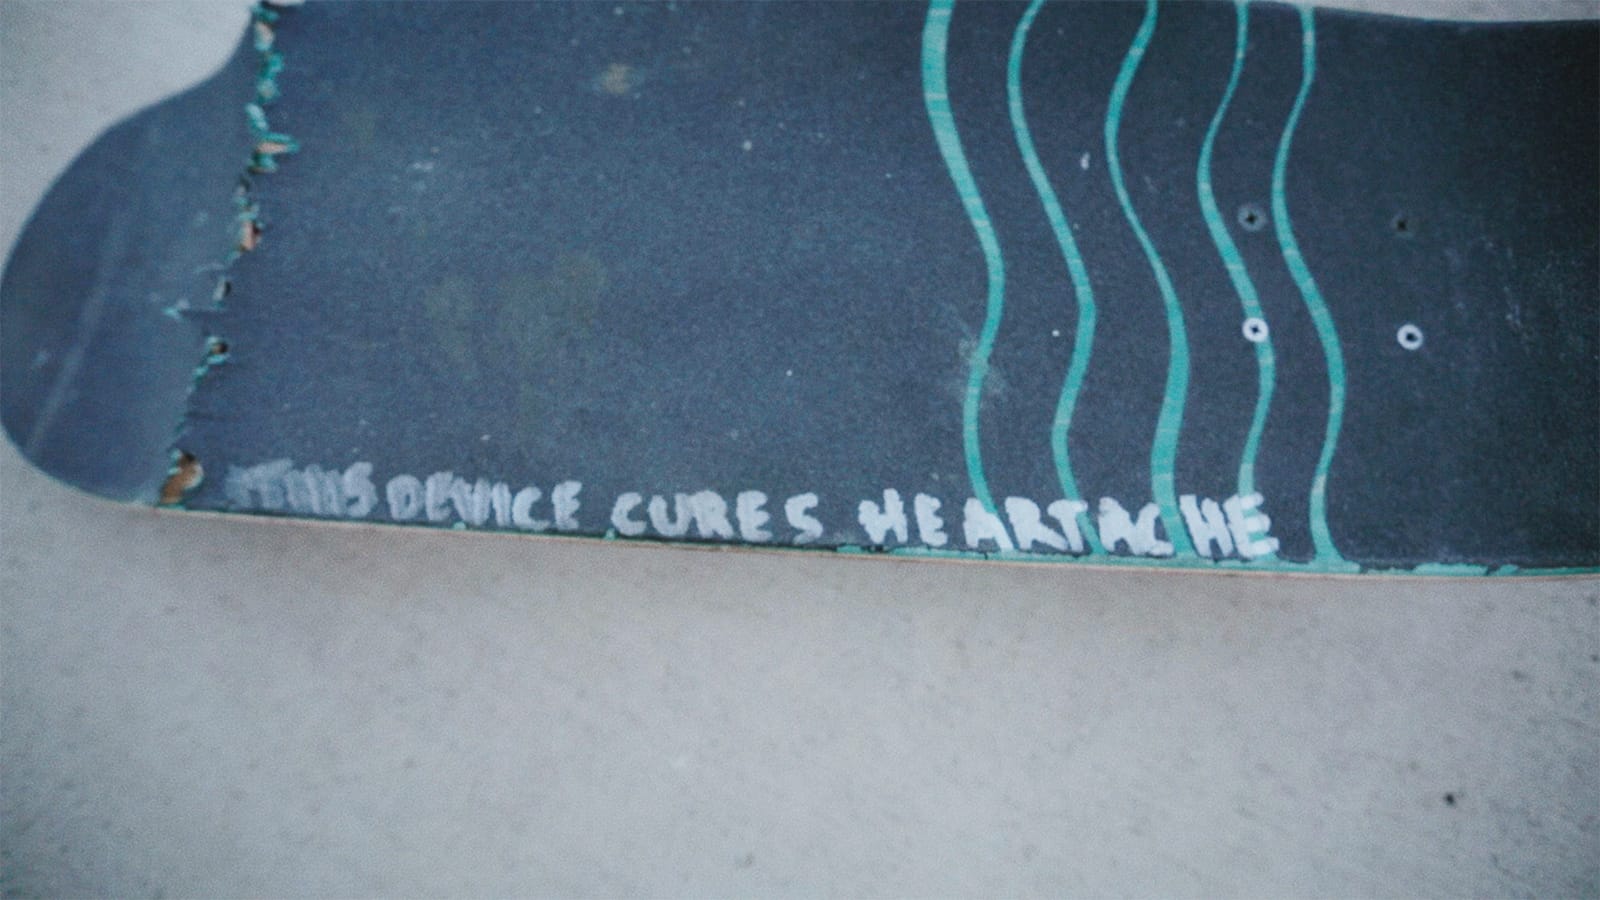 THIS DEVICE CURES HEARTACHE